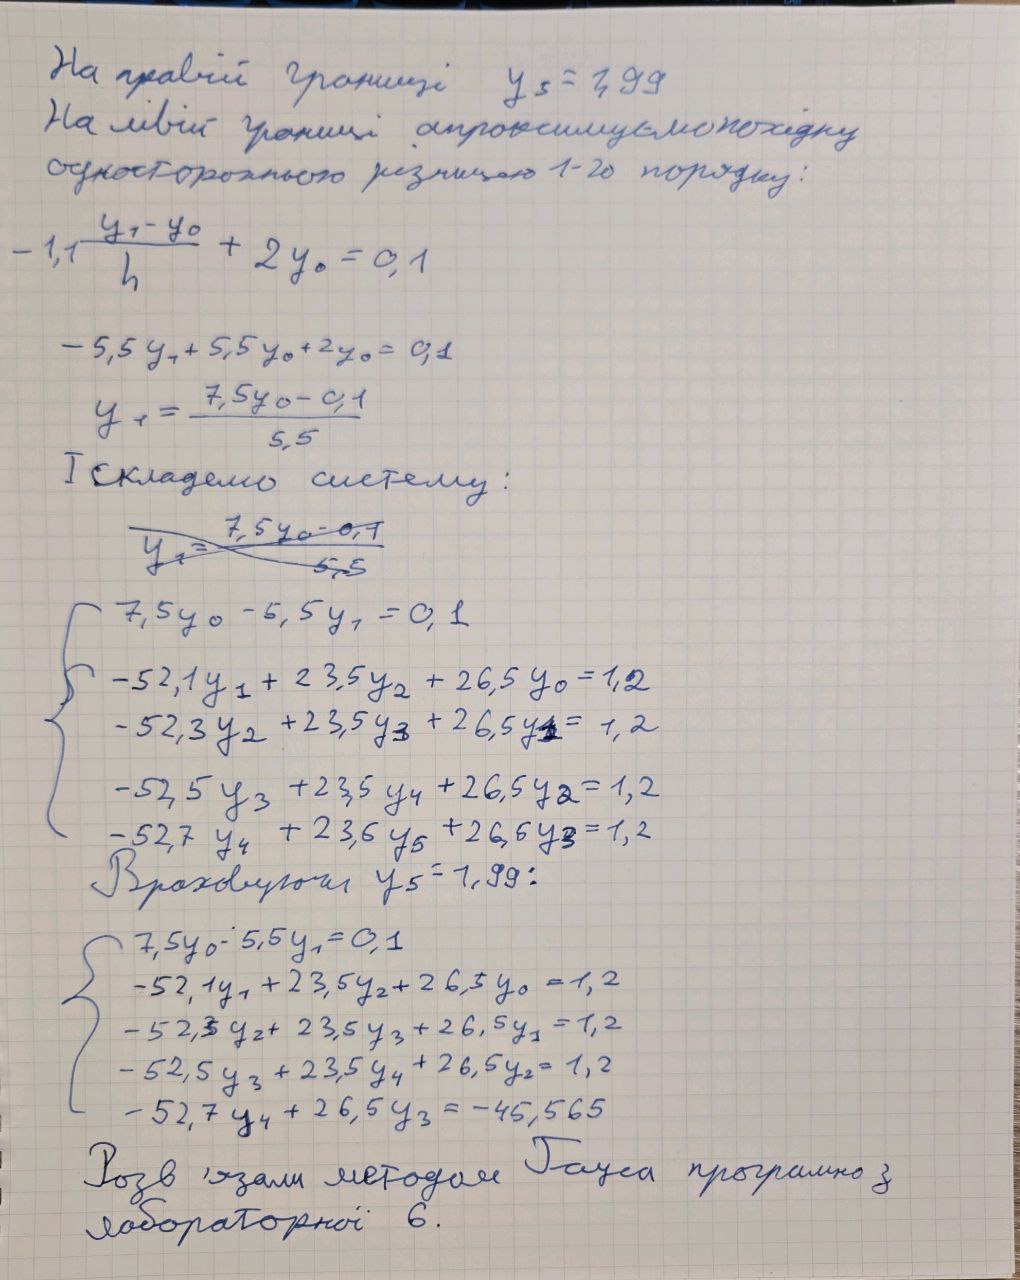 На правій границі y₅ = 1,99
На лівій границі апроксимуємо похідну
односторонньою різницею 1-го порядку:
-1,1 (y₁ - y₀)/h + 2y₀ = 0,1
-5,5y₁ + 5,5y₀ + 2y₀ = 0,1
y₁ = (7,5y₀ - 0,1)/5,5
І складемо систему:
y₁ = (7,5y₀ - 0,1)/5,5
7,5y₀ - 5,5y₁ = 0,1
-52,1y₁ + 23,5y₂ + 26,5y₀ = 1,2
-52,3y₂ + 23,5y₃ + 26,5y₁ = 1,2
-52,5y₃ + 23,5y₄ + 26,5y₂ = 1,2
-52,7y₄ + 23,5y₅ + 26,5y₃ = 1,2
Враховуючи y₅ = 1,99:
7,5y₀ - 5,5y₁ = 0,1
-52,1y₁ + 23,5y₂ + 26,5y₀ = 1,2
-52,3y₂ + 23,5y₃ + 26,5y₁ = 1,2
-52,5y₃ + 23,5y₄ + 26,5y₂ = 1,2
-52,7y₄ + 26,5y₃ = -45,565
Розв'язали методом Гауса програмно з
лабораторної 6.